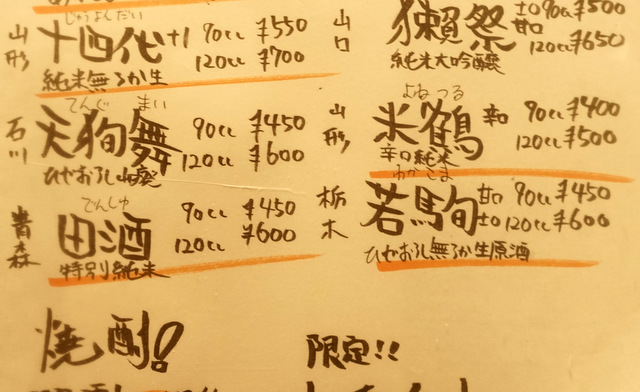 じゅうよんだい
山形 十四代 +1 90cc ¥550
120cc ¥700
純米無ろか生
てんぐ まい
石川 天狗舞 90cc ¥450
120cc ¥600
ひやおろし山廃
でんしゅ
青森 田酒 90cc ¥450
120cc ¥600
特別純米
焼酎!
山口 獺祭 ±0 90cc ¥500
甘口 120cc ¥650
純米大吟醸
よねつる
山形 米鶴 辛口 90cc ¥400
120cc ¥500
辛口純米
わかこま
栃木 若駒 甘口 90cc ¥450
±0 120cc ¥600
ひやおろし無ろか生原酒
限定!!